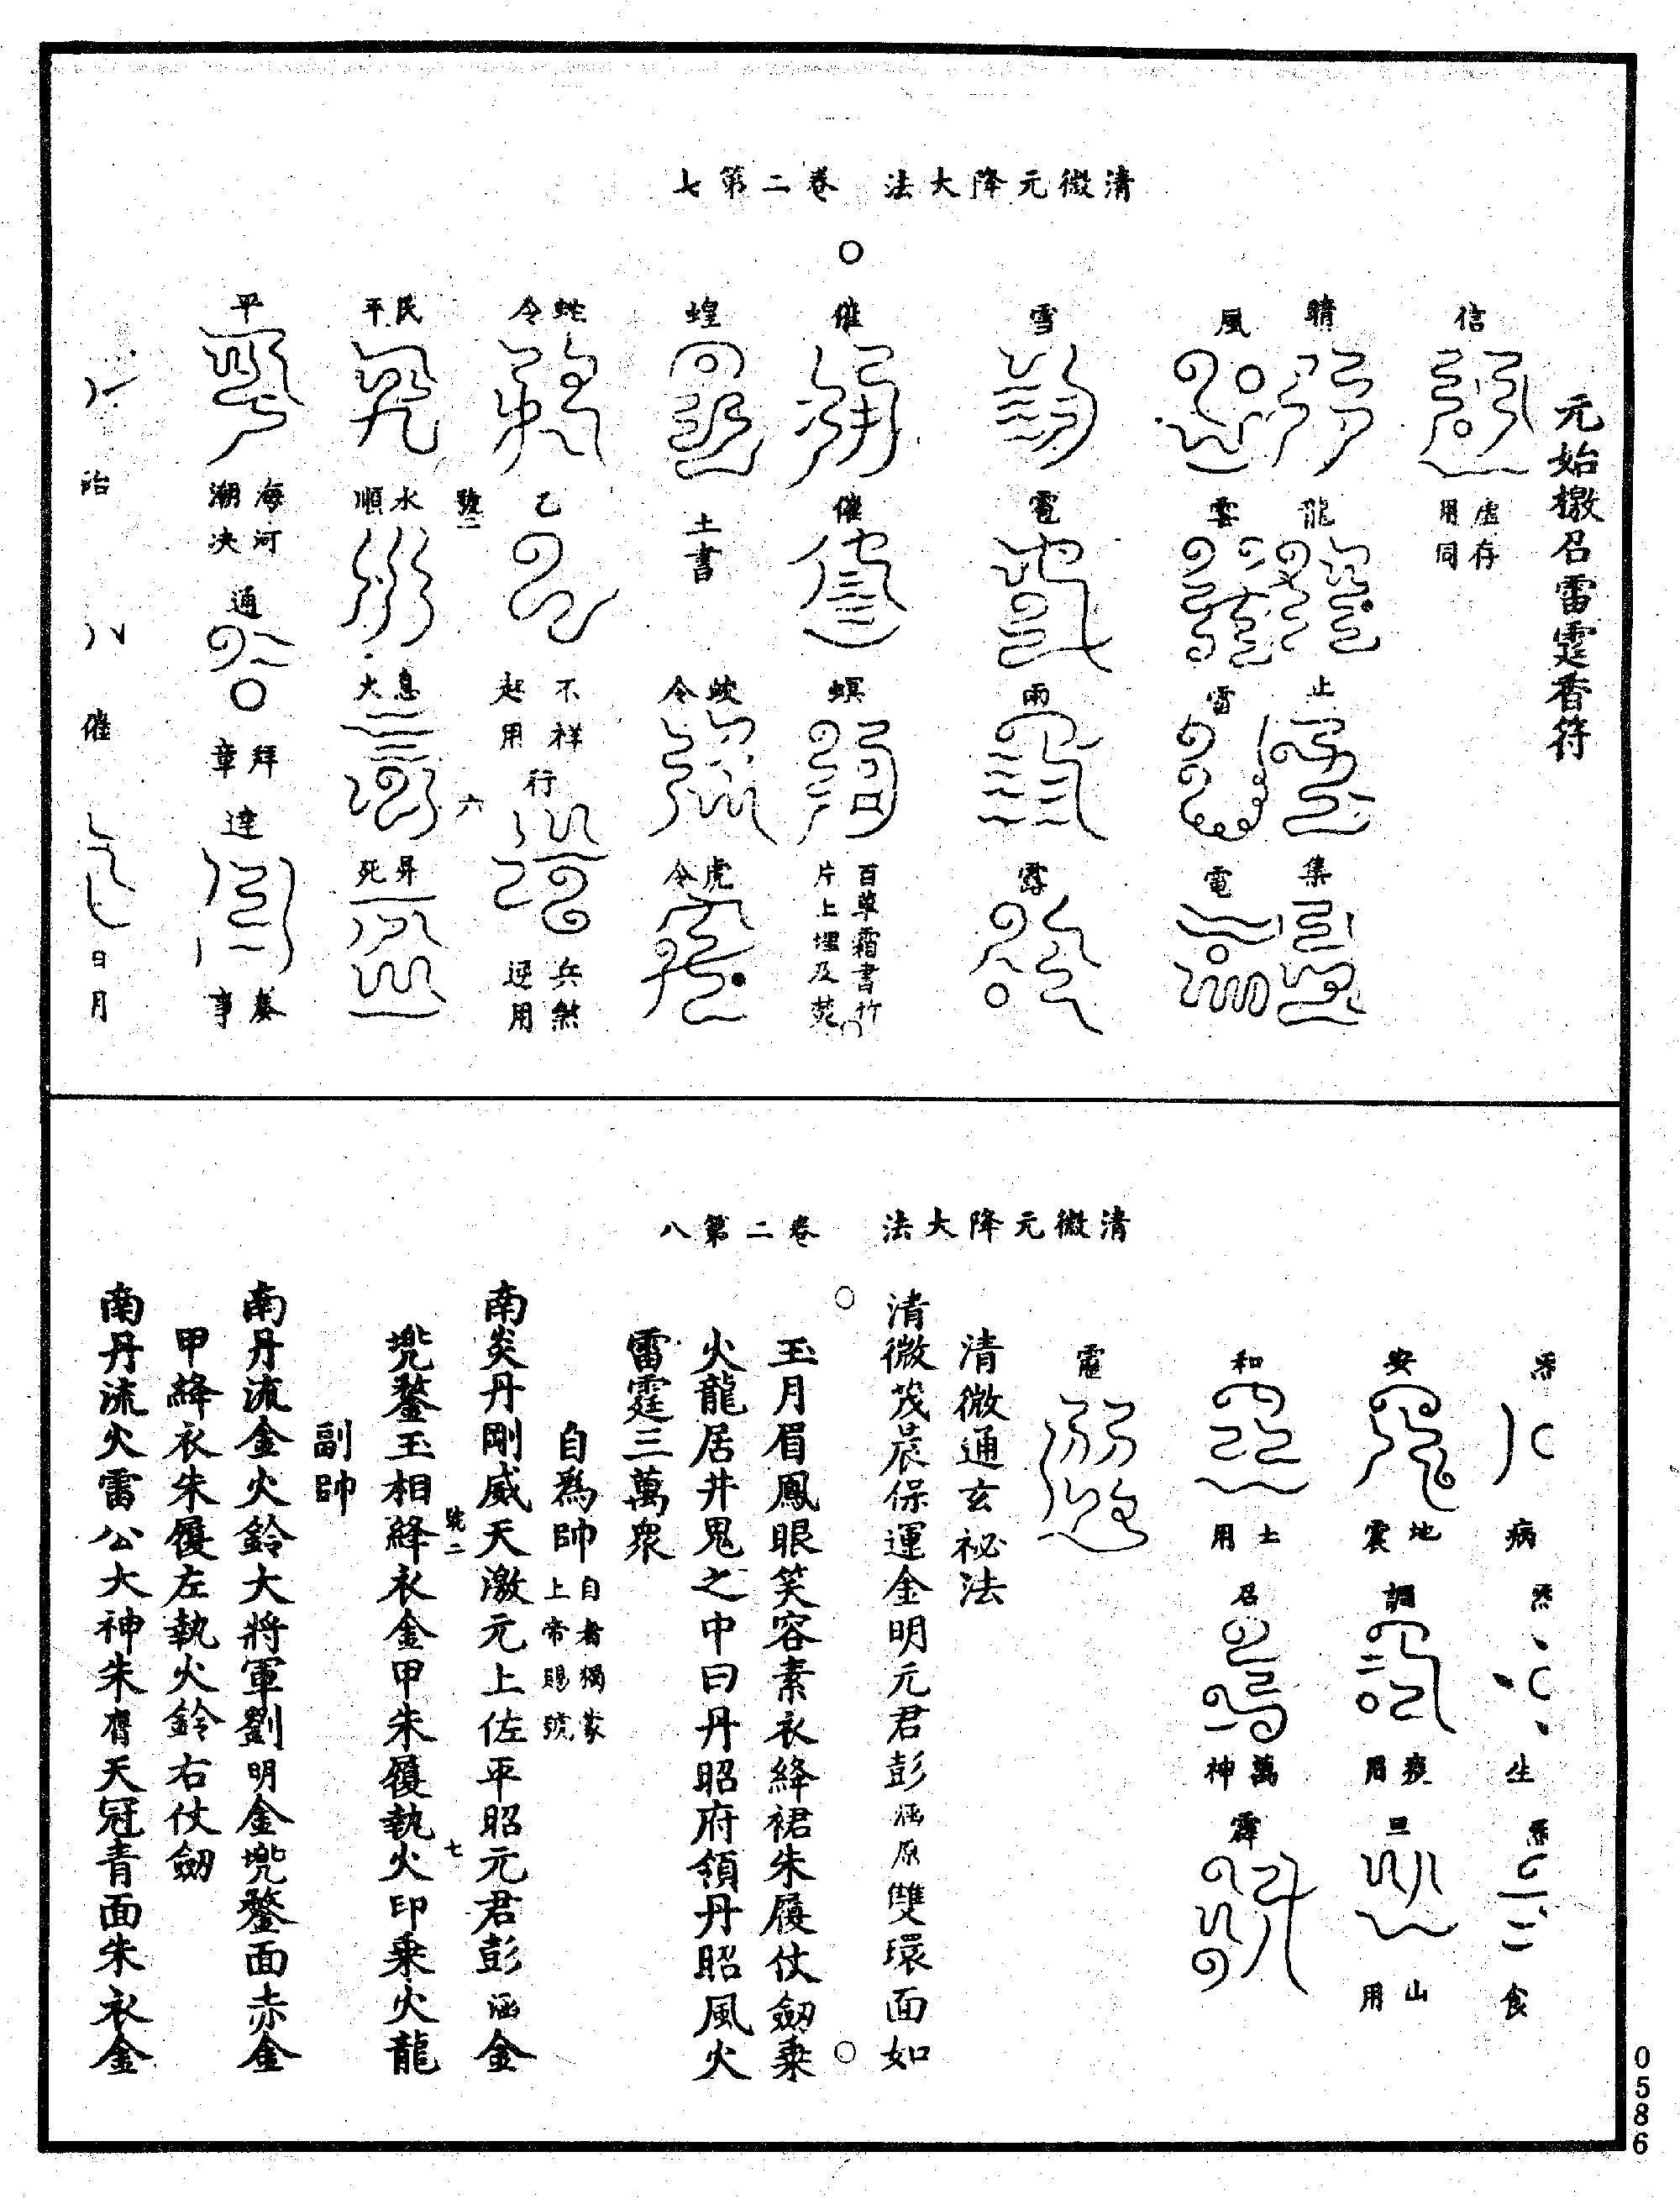 清微元降大法　卷二第七
元始檄召雷霆香符
信
虛存
用同
晴
龍
止
集
風
雲
雷
電
雪
雹
雨
露
催
催
螟
百草霜書竹
片上埋及焚
蝗
土書
蛟令
虎令
蛇令
乙
不祥
起用
行
兵煞
逆用
號二
六
民平
水順
息火
昇死
平
海河
潮決
通
拜章
達
奏事
治
催
日月
清微元降大法　卷二第八
病
生
食
安
地震
調
疫用
旦
山用
和
土用
召
萬神
霹
靂
清微通玄祕法
清微茂晨保運金明元君彭涵原雙環面如
玉月眉鳳眼笑容素衣絳裙朱履仗劒乘
火龍居井鬼之中曰丹昭府領丹昭風火
雷霆三萬衆
自爲帥
自者獨蒙
上帝賜號
南炎丹剛威天激元上佐平昭元君彭涵金
號二
七
兠鍪玉相絳衣金甲朱履執火印乘火龍
副帥
南丹流金火鈴大將軍劉明金兠鍪面赤金
甲絳衣朱履左執火鈴右仗劒
南丹流火雷公大神朱胥天冠青面朱衣金
0586